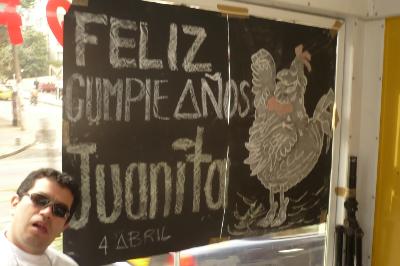 FELIZ
CUMPLEAÑOS
Juanita
4 ABRIL